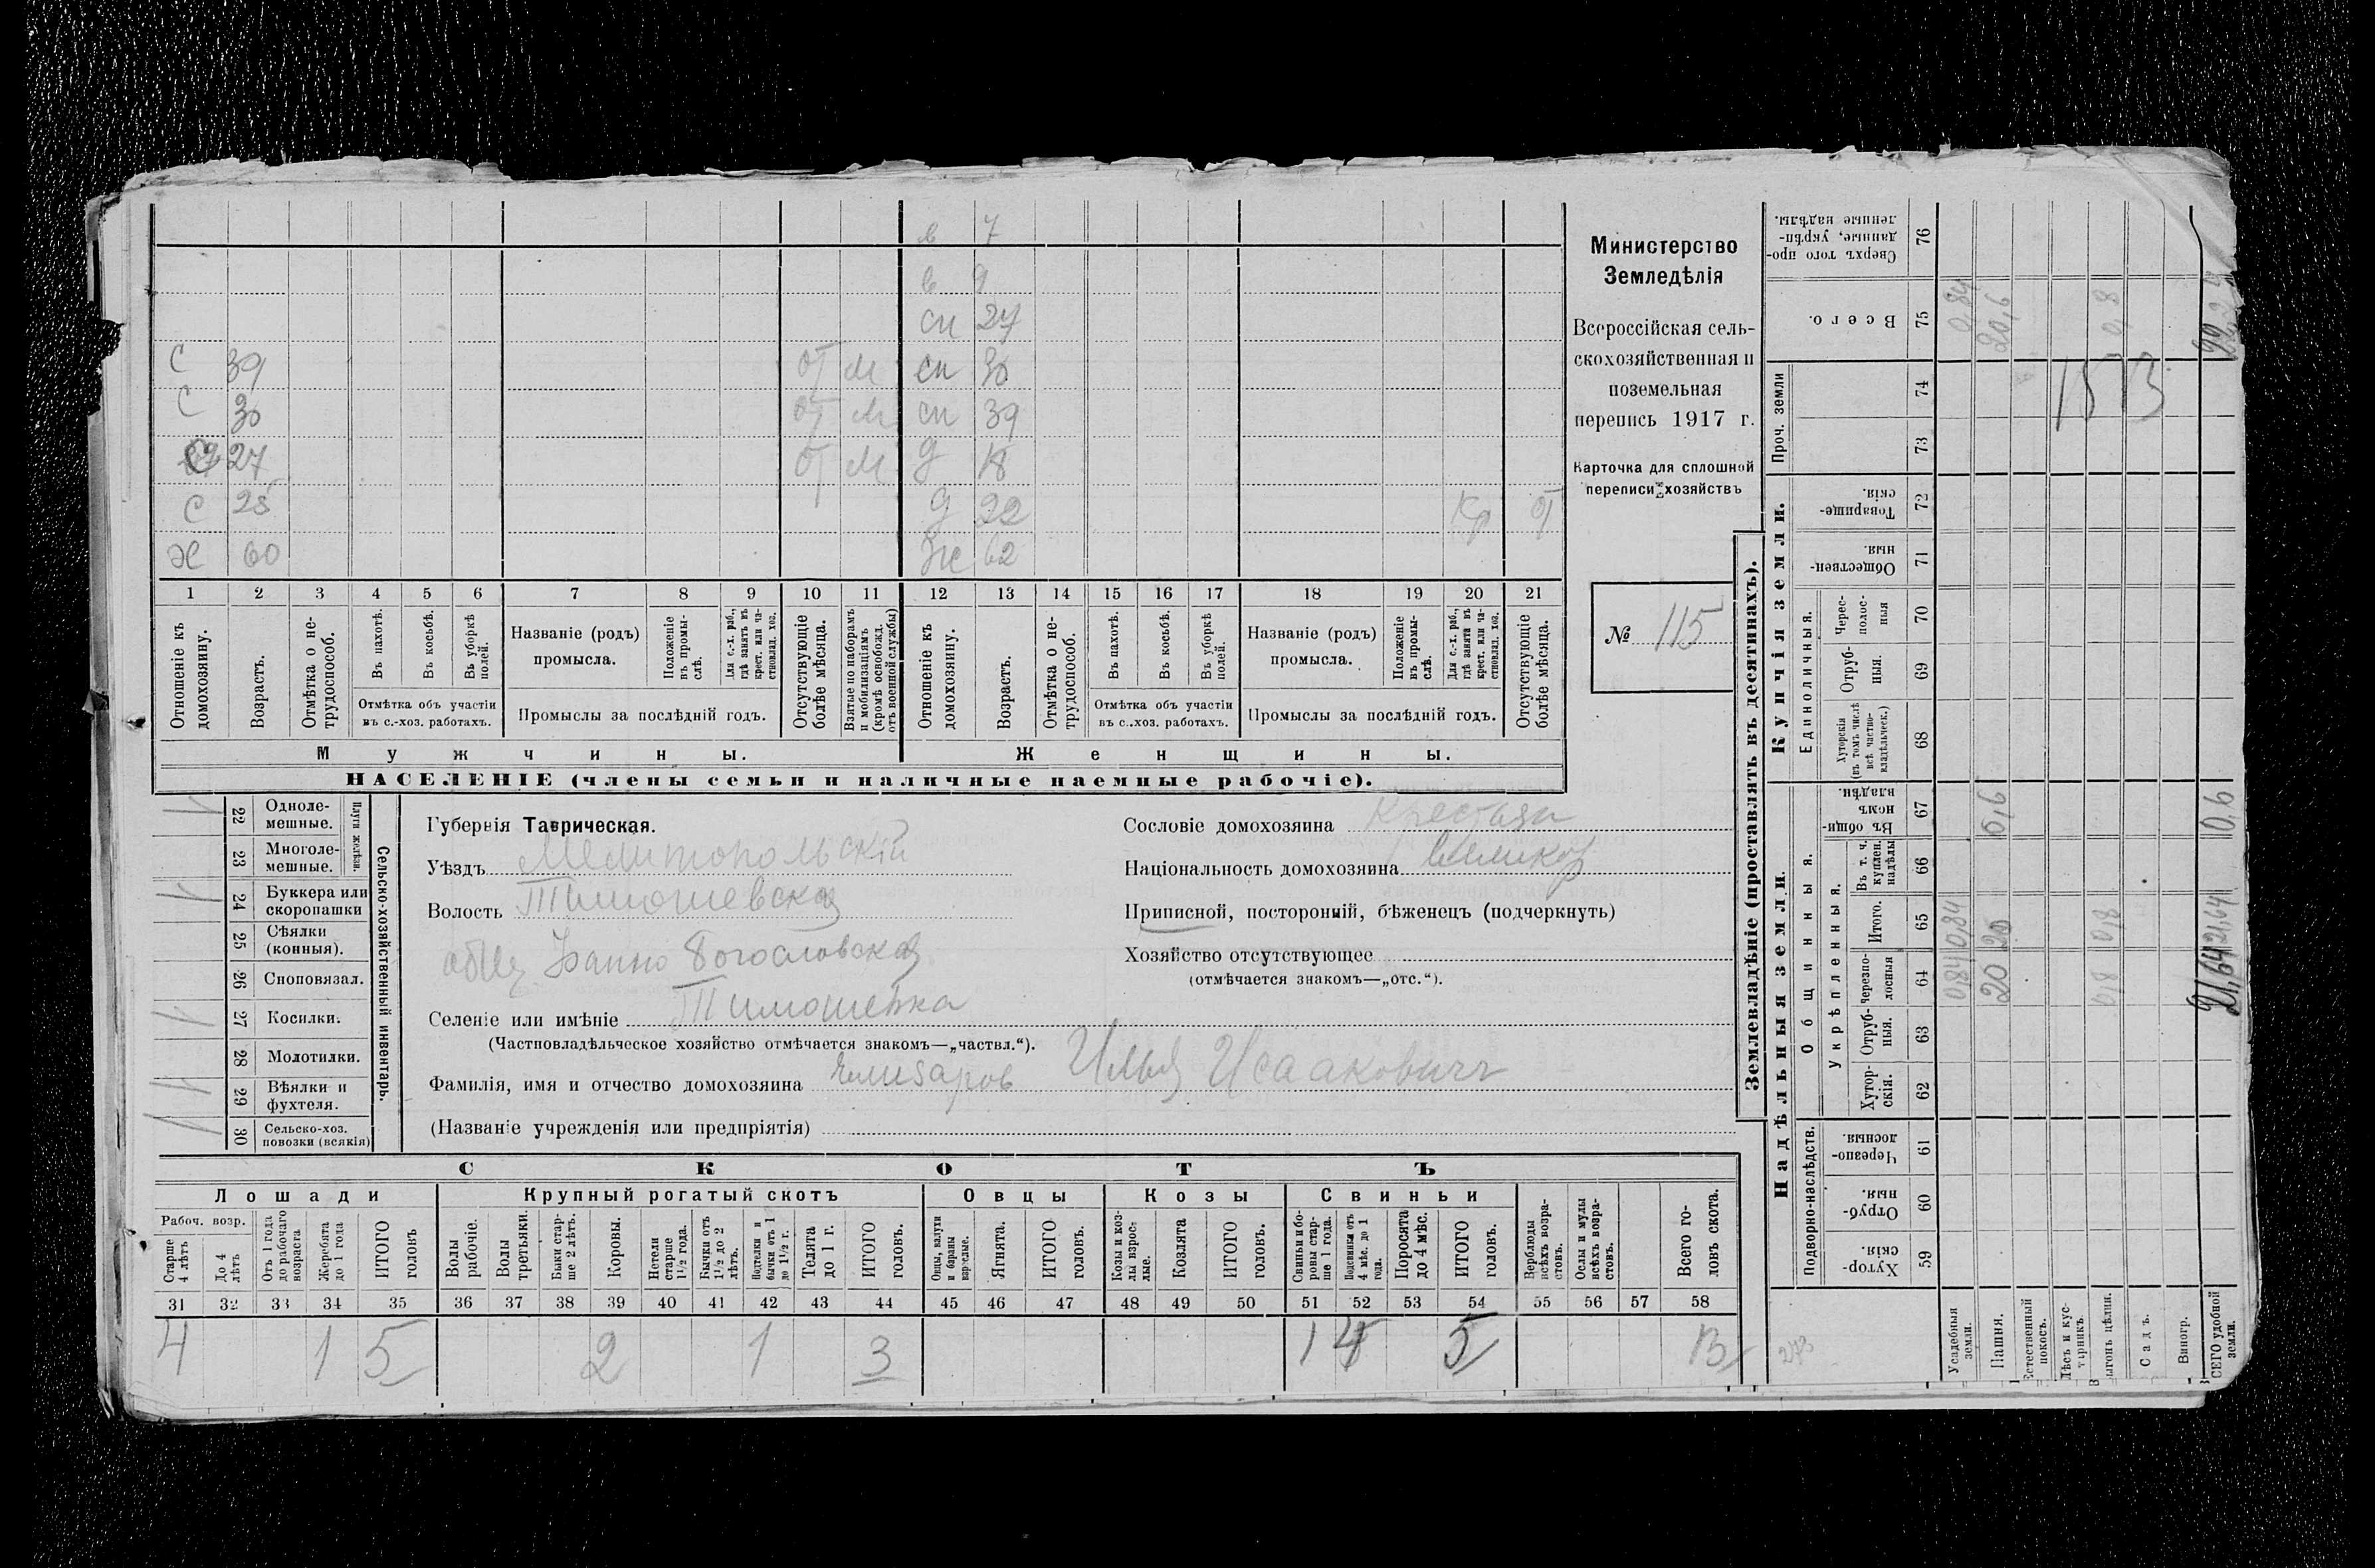 в 7
в 9
сн 27
С 39 от м сн 30
С 30 от м сн 39
С 27 от м д 18
С 25 д 22 кр от
Х 60 Же 62
1 2 3 4 5 6 7 8 9 10 11 12 13 14 15 16 17 18 19 20 21
Отношеніе къ домохозяину.
Возрастъ.
Отмѣтка о не-
трудоспособ.
Въ пахотѣ.
Въ косьбѣ.
Въ уборкѣ полей.
Отмѣтка объ участіи
въ с.-хоз. работахъ.
Названіе (родъ)
промысла.
Положеніе въ промы-
слѣ.
Для с.-х. раб., гдѣ занятъ въ крест. или ча-
стновлад. хоз.
Промыслы за послѣдній годъ.
Отсутствующіе болѣе мѣсяца.
Взятые по наборамъ и мобилизаціямъ (кромѣ освобожд. отъ военной службы)
Отношеніе къ домохозяину.
Возрастъ.
Отмѣтка о не-
трудоспособ.
Въ пахотѣ.
Въ косьбѣ.
Въ уборкѣ полей.
Отмѣтка объ участіи
въ с.-хоз. работахъ.
Названіе (родъ)
промысла.
Положеніе въ промы-
слѣ.
Для с.-х. раб., гдѣ занята въ крест. или ча-
стновлад. хоз.
Промыслы за послѣдній годъ.
Отсутствующіе болѣе мѣсяца.
Мужчины. Женщины.
НАСЕЛЕНІЕ (члены семьи и наличные наемные рабочіе).
Министерство
Земледѣлія
Всероссійская сель-
скохозяйственная и
поземельная
перепись 1917 г.
Карточка для сплошной
переписи хозяйствъ
№ 115
22 Одноле-
мешные.
23 Многоле-
мешные.
Плуги желѣзн.
24 Буккера или
скоропашки
25 Сѣялки
(конныя).
26 Сноповязал.
27 Косилки.
28 Молотилки.
29 Вѣялки и
фухтеля.
30 Сельско-хоз.
повозки (всякія)
Сельско-хозяйственный инвентарь.
Губернія Таврическая.
Уѣздъ Мелитопольскій
Волость Тимошевская
общ Іоанно Богословская
Селеніе или имѣніе Тимошевка
(Частновладѣльческое хозяйство отмѣчается знакомъ—„частвл.“).
Фамилія, имя и отчество домохозяина Елизаров Илья Исааковичъ
(Названіе учрежденія или предпріятія)
Сословіе домохозяина Крестьян
Національность домохозяина Великор
Приписной, посторонній, бѣженецъ (подчеркнуть)
Хозяйство отсутствующее
(отмѣчается знакомъ—„отс.“).
СКОТЪ
Лошади Крупный рогатый скотъ Овцы Козы Свиньи
Рабоч. возр.
Старше 4 лѣтъ
До 4 лѣтъ
Отъ 1 года до рабочаго возраста
Жеребята до 1 года
ИТОГО головъ
Волы рабочіе.
Волы третьяки.
Быки стар-
ше 2 лѣтъ.
Коровы.
Нетели старше 1½ года.
Бычки отъ 1½ до 2 лѣтъ.
Подтелки и бычки отъ 1 до 1½ г.
Телята до 1 г.
ИТОГО головъ.
Овцы, валухи и бараны взрослые.
Ягнята.
ИТОГО головъ.
Козы и коз-
лы взрос-
лые.
Козлята
ИТОГО головъ.
Свиньи и бо-
ровы стар-
ше 1 года.
Подсвинки отъ 4 мѣс. до 1 года.
Поросята до 4 мѣс.
ИТОГО головъ.
Верблюды всѣхъ возра-
стовъ.
Ослы и мулы всѣхъ возра-
стовъ.
Всего го-
ловъ скота.
31 32 33 34 35 36 37 38 39 40 41 42 43 44 45 46 47 48 49 50 51 52 53 54 55 56 57 58
4 1 5 2 1 3 1 4 5 13
Землевладѣніе (проставлять въ десятинахъ).
Надѣльныя земли. Купчія земли. Проч. земли
Подворно-наслѣдств.
Общинныя.
Укрѣпленныя.
Единоличныя.
Хутор-
скія. 59
Отруб-
ныя. 60
Черезпо-
лосныя. 61
Хутор-
скія. 62
Отруб-
ныя. 63
Черезпо-
лосныя 64
Итого. 65
Въ т. ч. куплен. надѣлы 66
Въ общи-
номъ владѣн. 67
Хуторскія (въ томъ числѣ всѣ частно-
владѣльческ.) 68
Отруб-
ныя. 69
Черес-
полос-
ныя 70
Обществен-
ныя. 71
Товарище-
скія. 72
73
74
Всего. 75
Сверхъ того про-
данные, укрѣп-
ленные надѣлы. 76
Усадебныя земли. 0,84 0,84 0,84
Пашня. 20 20 0,6 20,6
Естественный покосъ.
Лѣсъ и кус-
тарникъ.
Выгонъ цѣлин. 0,8 0,8 0,8
Садъ.
Виногр.
ВСЕГО удобной земли. 21,64 21,64 0,6 22,24
1513
273